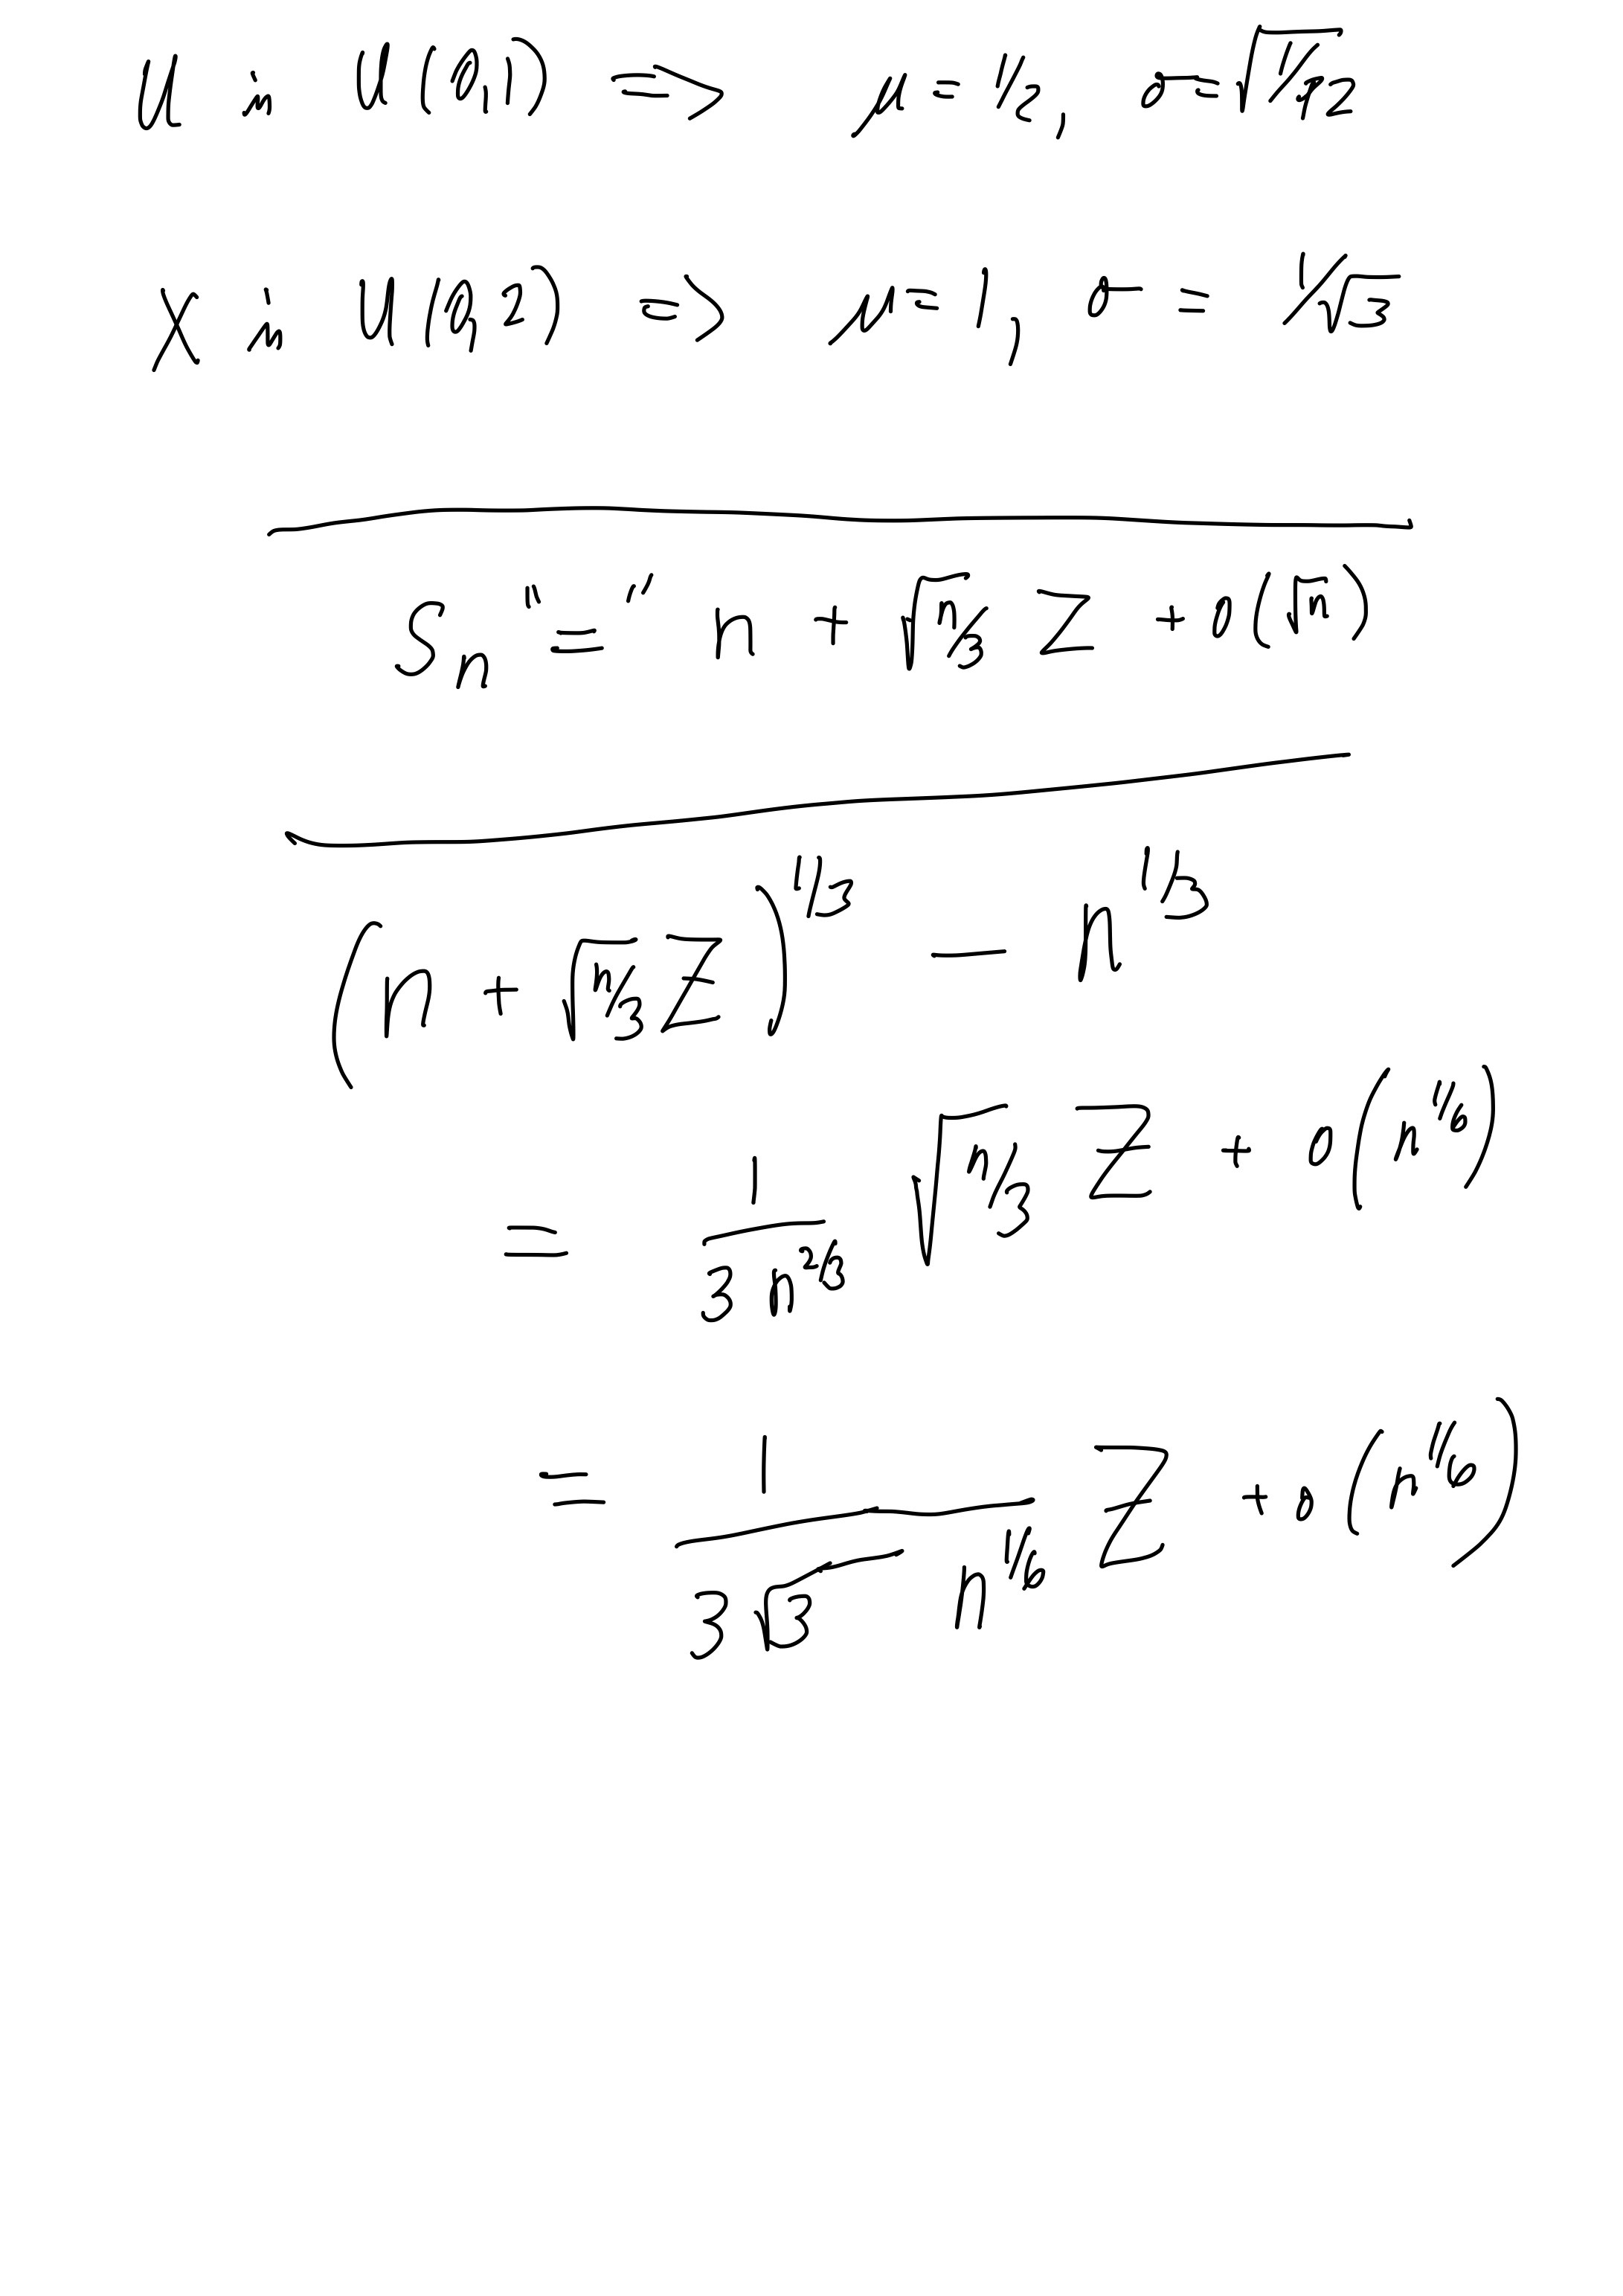 U is U(0,1) ⟹ μ = 1/2, σ = √(1/12)
X is U(0,2) ⟹ μ = 1, σ = 1/√3
Sₙ "=" n + √(n/3) Z + o(√n)
(n + √(n/3) Z)^(1/3) − n^(1/3)
= 1/(3 n^(2/3)) √(n/3) Z + o(n^(1/6))
= 1/(3√3 n^(1/6)) Z + o(n^(1/6))